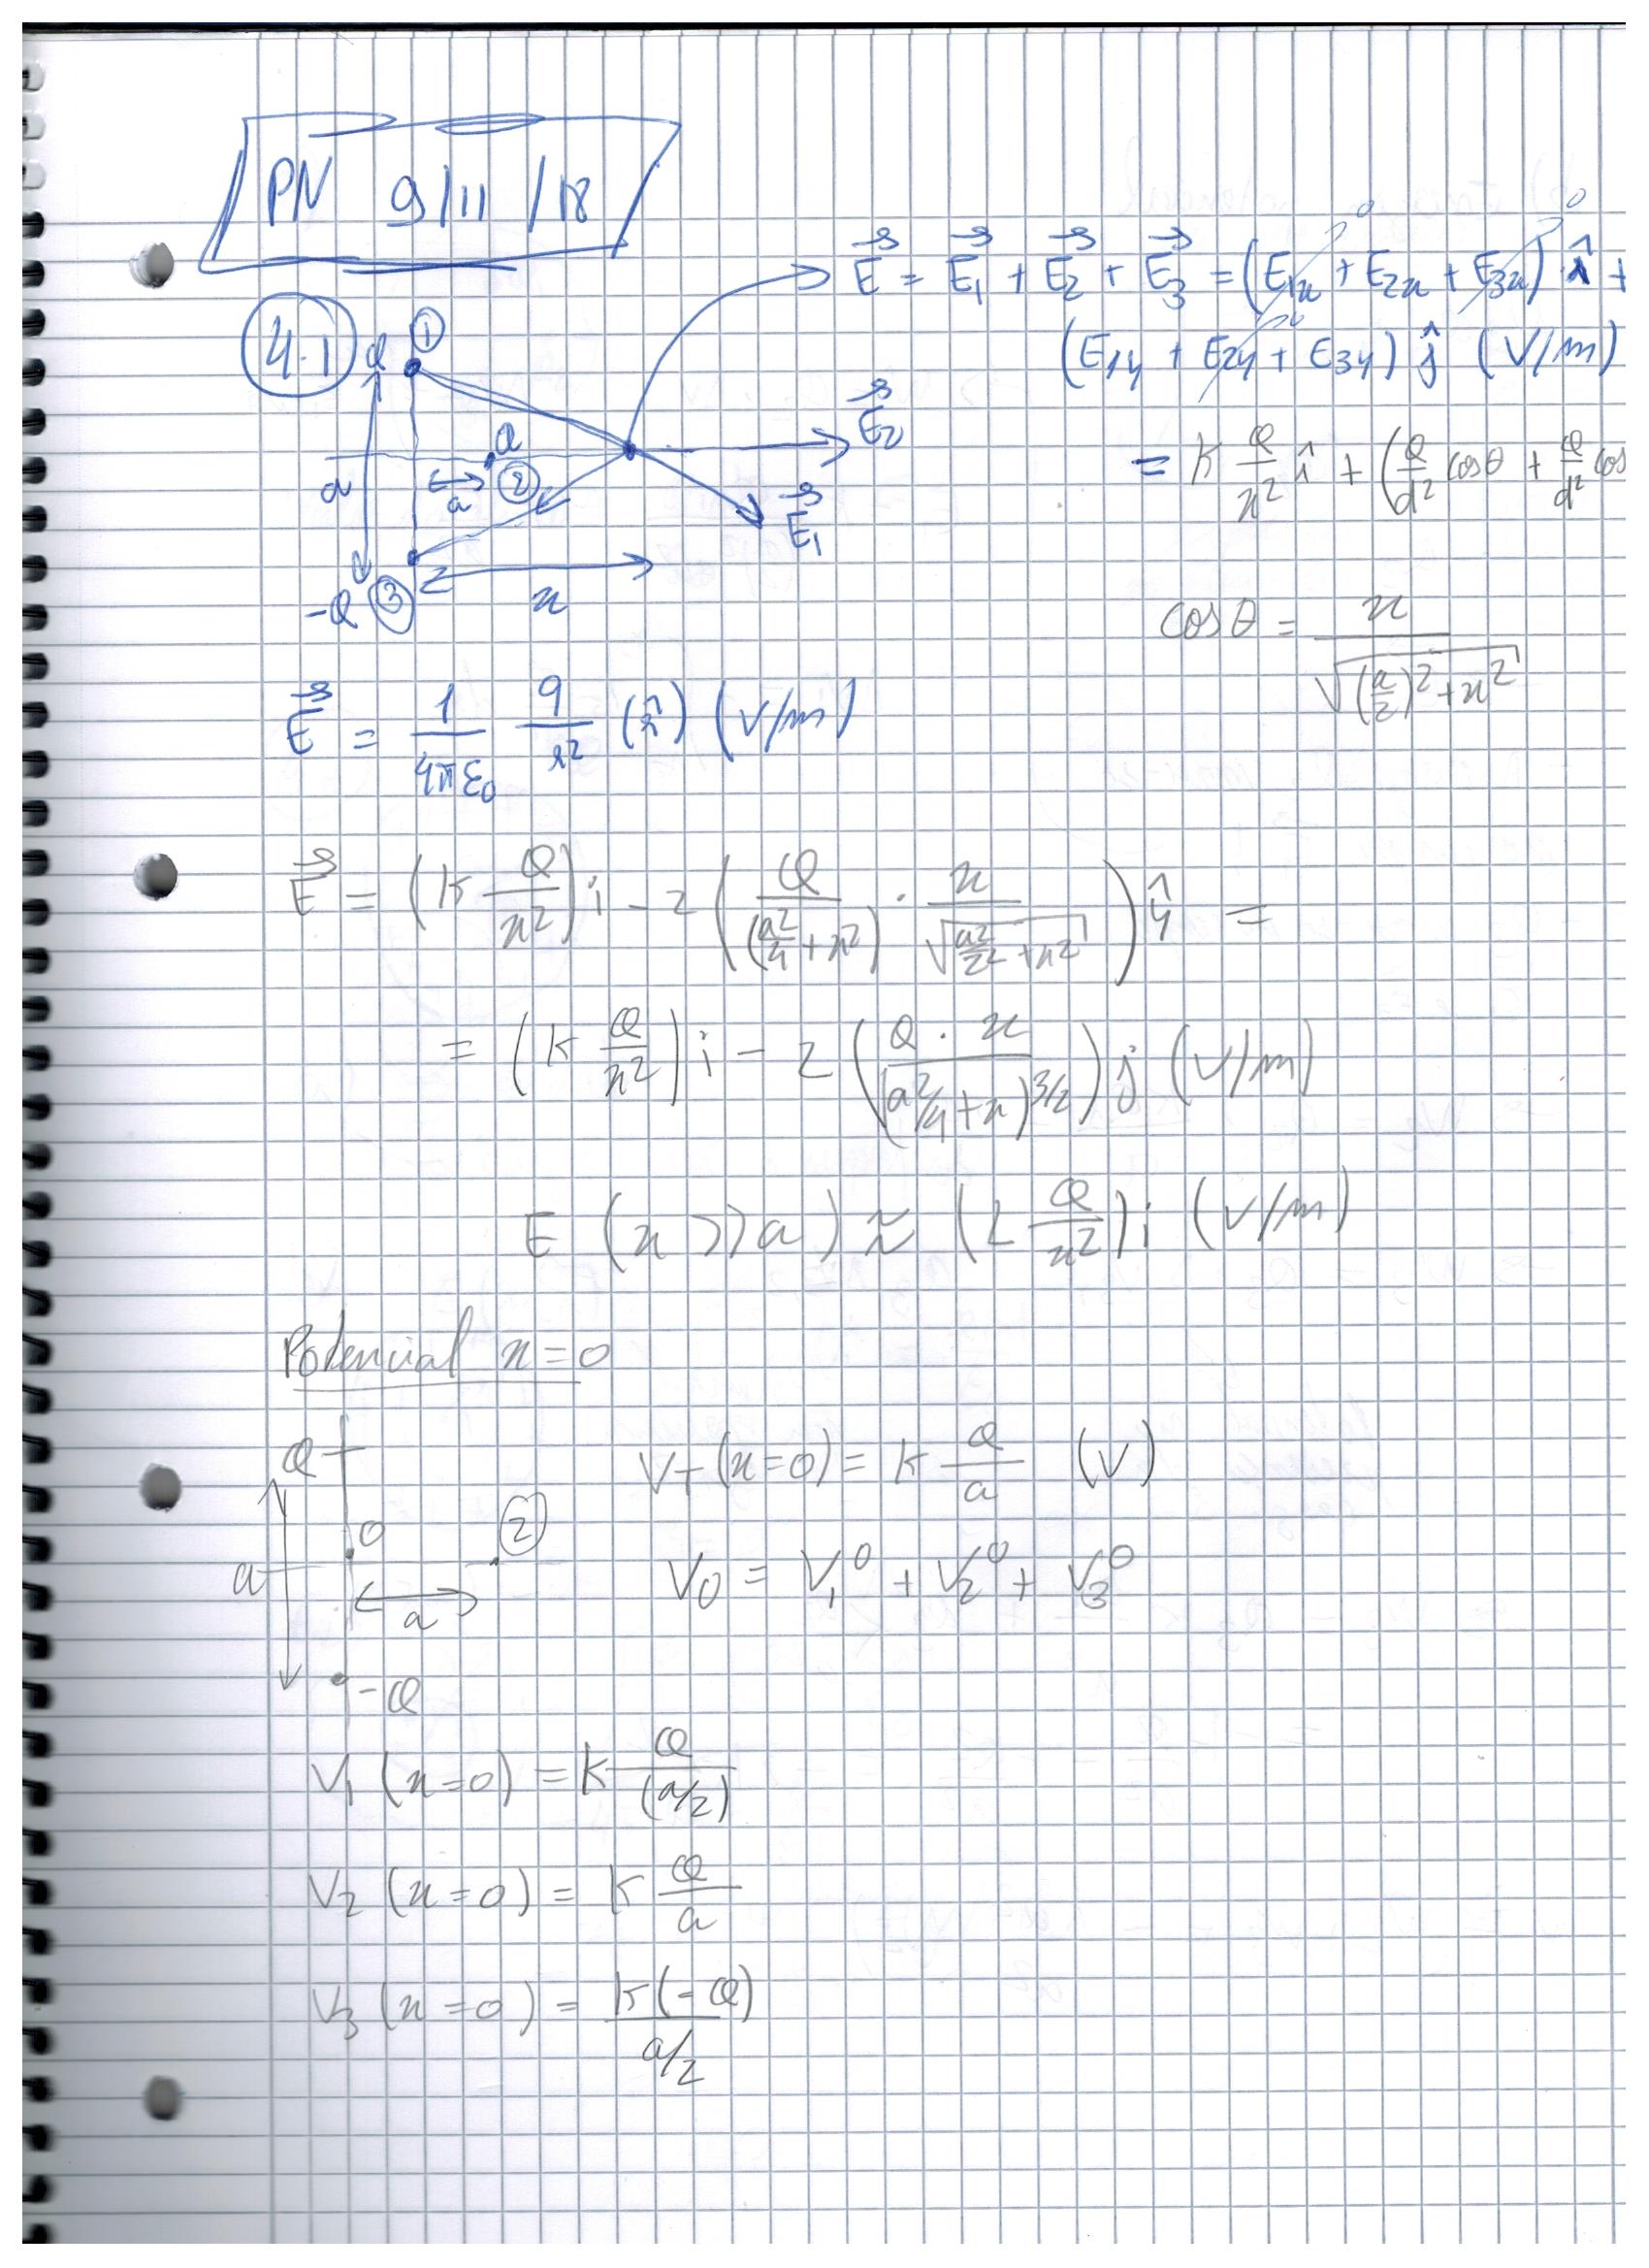 PN 9/11/18
4.1
Q ①
E⃗ = E⃗₁ + E⃗₂ + E⃗₃ = (E₁ₓ⁰ + E₂ₓ + E₃ₓ⁰) î +
(E₁y + E₂y⁰ + E₃y) ĵ (V/m)
Q E⃗₂
a a ② E⃗₁
= K Q/x² î + (Q/d² cosθ + Q/d² cos
-Q ③ x
cosθ = x/√((a/2)² + x²)
E⃗ = 1/(4πε₀) q/r² (r̂) (V/m)
E⃗ = (K Q/x²) i - 2 (Q/(a²/4 + x²) · x/√(a²/2² + x²)) ŷ =
= (K Q/x²) i - 2 (Q · x/(a²/4 + x)^(3/2)) j (V/m)
E (x >> a) ≈ (k Q/x²) i (V/m)
Potencial x=0
Q
V_T (x=0) = K Q/a (V)
O ②
a a
V₀ = V₁⁰ + V₂⁰ + V₃⁰
-Q
V₁ (x=0) = K Q/(a/2)
V₂ (x=0) = K Q/a
V₃ (x=0) = K(-Q)/a/2